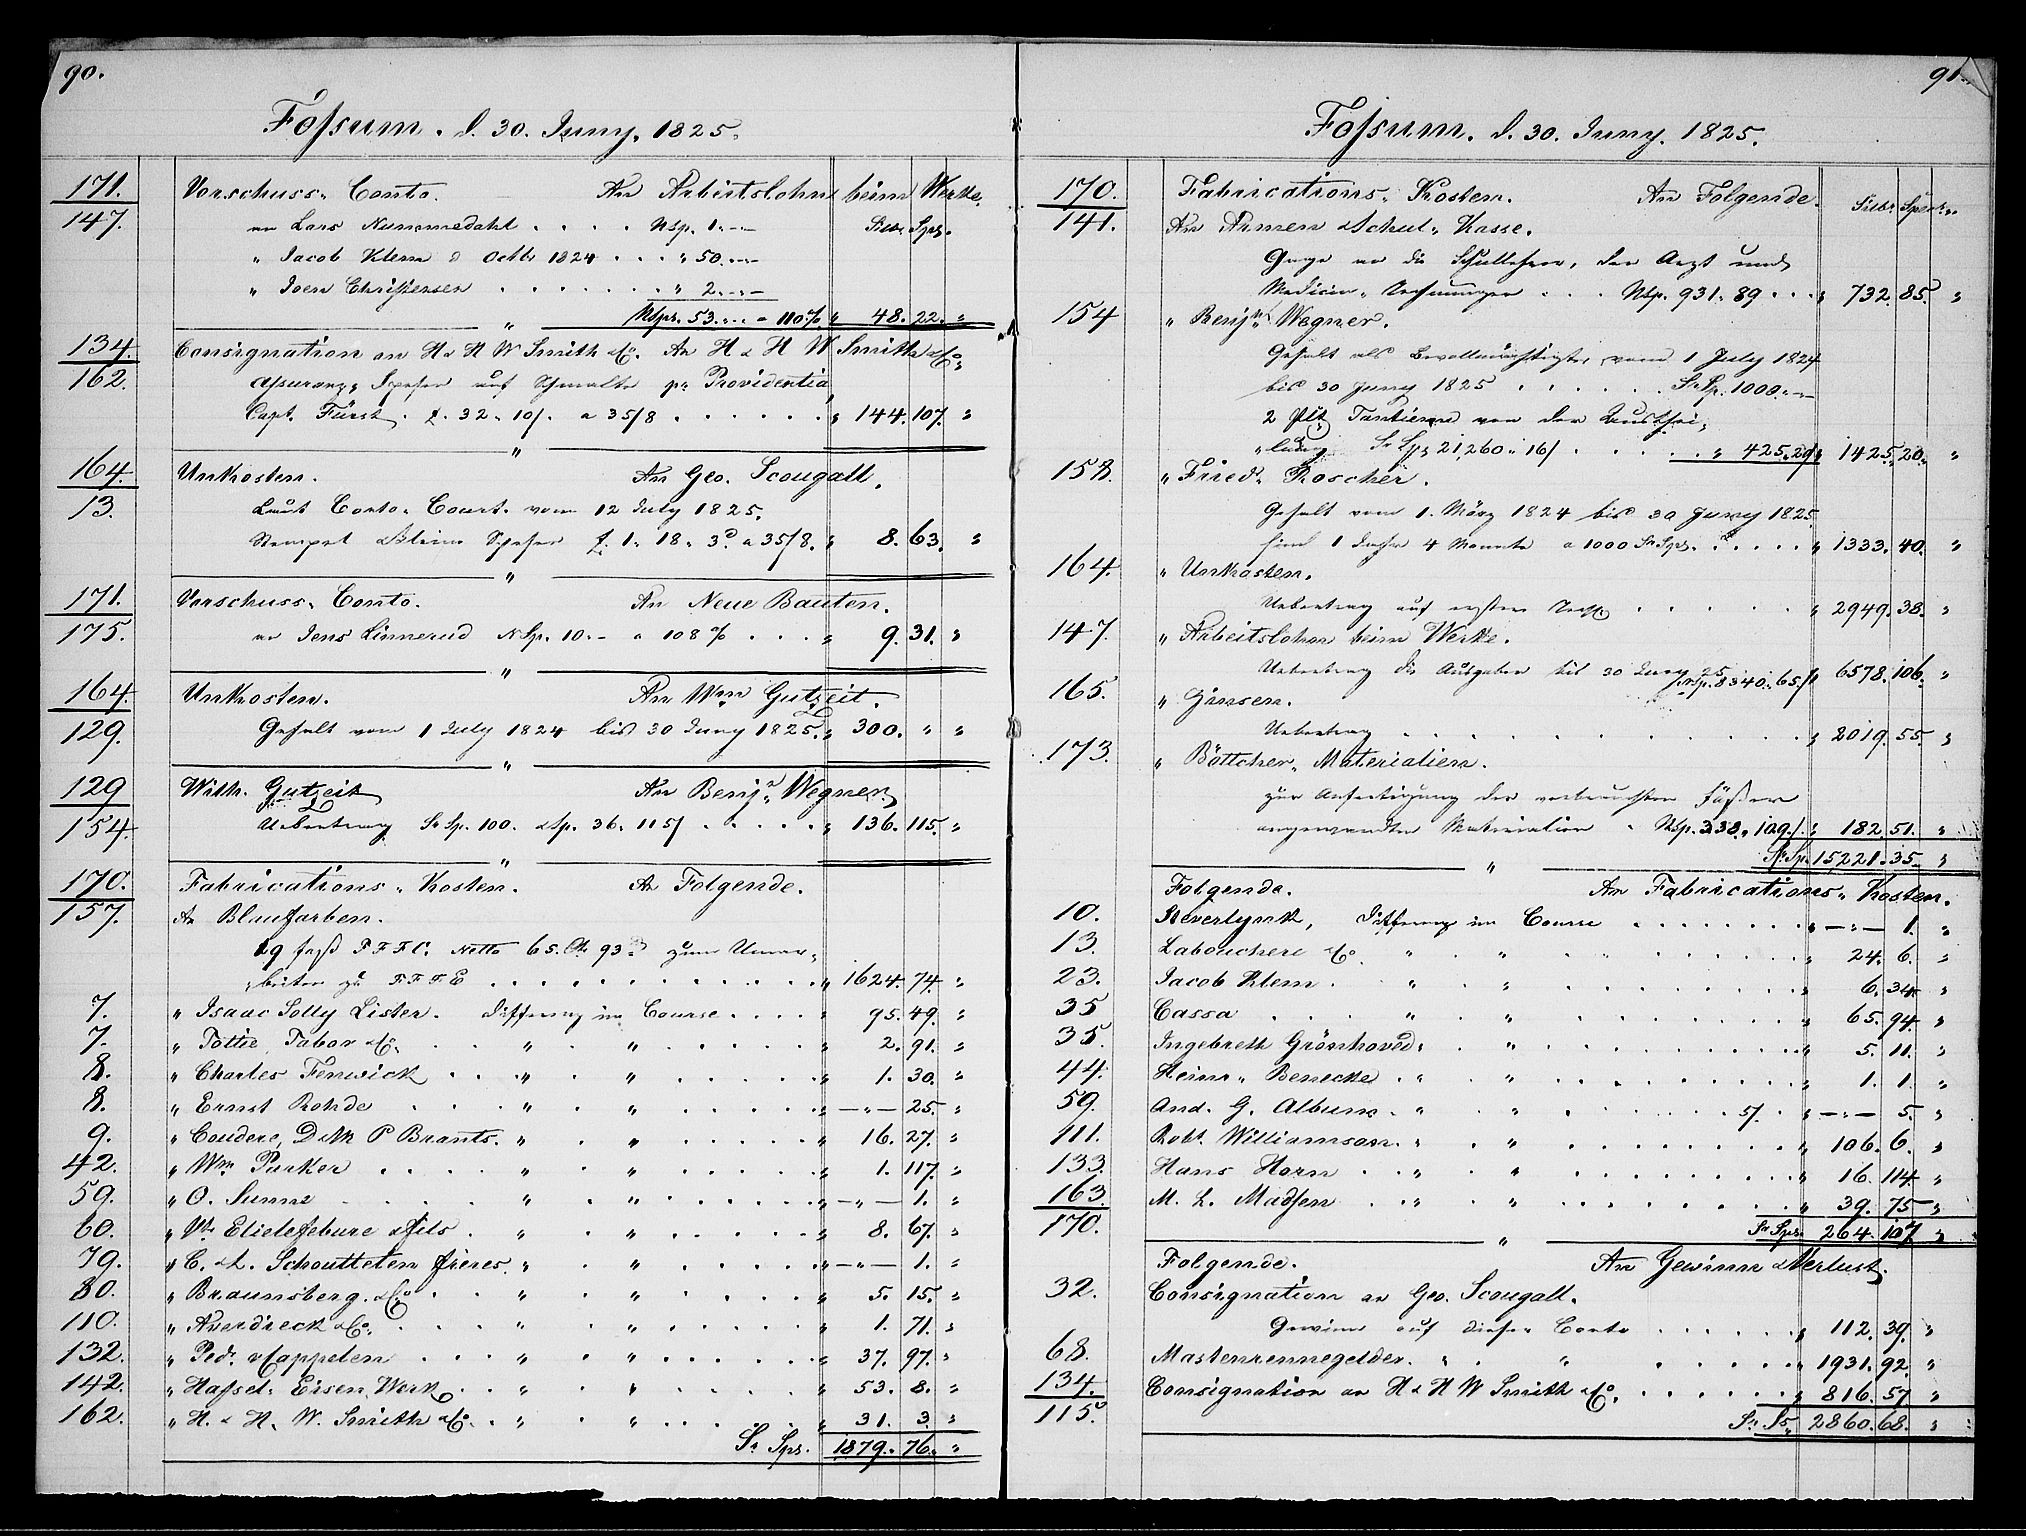 90.
Fossum. d. 30. Juny. 1825.
171. Vorschuss. Conto. An Arbeitslohn beim Werke.
147. an Lars Nummedahl . . . . Nsp. 1.-.- Silbr. Sps.
" Jacob Klem d Octbr 1824 . . . " 50.-.-
" Joen Christensen . . . . . . . " 2.-.-
NSps. 53.-.- a 110% " 48. 22. "
134. Consignation an H & H W Smith & Co. An H & H W Smith & Co.
162. Assuranz. Spesen auf Schmalte pr Providentia
Capt. Fürst. £. 32. 10/. a 35/8 . . . . . . " 144. 107. "
164. Unkosten. An Geo. Scougall.
13. Laut Conto. Court. vom 12 July 1825.
Stempel & kleine Spesen £. 1. 18. 3d. a 35/8. " 8. 63. "
171. Vorschuss. Conto. An Neue Bauten.
175. an Jens Linnerud NSp. 10.- a 108% . . . " 9. 31. "
164. Unkosten. An Wm Gutzeit.
129. Gehalt vom 1 July 1824 bis 30 Juny 1825. " 300. " "
129 Wilh. Gutzeit An Benjn Wegner
154. Uebertrag Sr Sp. 100. & Sp. 36. 115/ . . . . " 136. 115. "
170. Fabrications. Kosten. An Folgende.
157. An Blaufarben.
19 Fass F.F.F.C. Netto 65. Ctr 93 zum Umar-
beiten zu F.F.F.E . . . . . . . . . . " 1624. 74. "
7. " Isaac Solly Lister. Differenz im Course . . . . " 95. 49. "
7. " Tottie, Tabor & Co. . " . " . . . . . " 2. 91. "
8. " Charles Fenwick . . . " . " . . . . . " 1. 30. "
8. " Ernst Rohde . . . " . " . . . . . " -"- 25. "
9. " Couderc, D & M P Brants. " . " . . . . . " 16. 27. "
42. " Wm Parker . . . . " . " . . . . . " 1. 117. "
59. " O. Sunne . . . . " . " . . . . . " -"- 1. "
60. " Ve Elielefebure & fils . " . " . . . . . " 8. 67. "
79. " C. & L. Schoutteten frères. " . " . . . . . " -"- 1. "
80. " Braunsberg. & Co . . " . " . . . . . " 5. 15. "
110. " Averdieck & Co. . . . " . " . . . . . " 1. 71. "
132. " Pedr. v Cappelen . . . " . " . . . . . " 37. 97. "
142. " Hassel. Eisen. Werk . . " . " . . . . . " 53. 8. "
162. " H. & H. W. Smith & Co. . " . " . . . . . " 31. 3. "
Sr Sps. 1879. 76. "
91.
Fossum. d. 30. Juny. 1825.
170. Fabrications. Kosten. An Folgende. Silbr. Spec.
141. An Armen & Schul. Kasse.
Gage an die Schullehrer, den Arzt und
Medicin. Rechnungen . . . NSp. 931. 89 . . . " 732. 85. "
154 " Benjn Wegner.
Gehalt als Bevollmächtigter vom 1 July 1824
bis 30 Juny 1825 . . . . . . Sr Sp. 1000.-.-
2 pCt Tantieme von der Austhei-
" lung Sr Sp. 21,260. 16/ . . . . . " 425. 20/ " 1425. 20. "
158. " Friedr Roscher.
Gehalt vom 1. März 1824 bis 30 Juny 1825.
sind 1 Jahr 4 Monate a 1000 Sr Sps. . . . . . " 1333. 40. "
164. " Unkosten.
Uebertrag auf ersten . . . . . . " 2949. 38. "
147. " Arbeitslohn beim Werke.
Uebertrag der Ausgaben bis 30 Juny 25 NSp. 8340. 65/ " 6578. 106. "
165. " Gänsen.
Uebertrag . . . . . . . . . . . . " 2019. 55. "
173. " Böttcher. Materialien.
zur Anfertigung der verbrauchten Fässer
angewandten Materialien . NSp. 338. 109/. " 182. 51. "
Sr Sp. 15,221. 35. "
Folgende. An Fabrications. Kosten.
10. Reverlynk, Differenz im Course . . . . . . . . " -"- 1. "
13. Labouchere & Co. " . " . . . . . . . " 24. 6. "
23. Jacob Klem . . " . " . . . . . . . . " 6. 34. "
35 Cassa . . . . " . " . . . . . . . . " 65. 94. "
35. Ingebreth Grönhoved. . " . . . . . . . . " 5. 11. "
44. Heinr. Benecke . . " . " . . . . . . . . " 1. 1. "
59. And. G. Album. . " . " . . . . . 5/. . " -"- 5. "
111. Robt. Williamson. . " . " . . . . . . . . " 106. 6. "
133. Hans Horn . . " . " . . . . . . . . " 16. 114. "
163. M. L. Madsen . . " . " . . . . . . . . " 39. 75 "
170. Sr Sps. 264. 107. "
Folgende. An Gewinn & Verlust.
32. Consignation an Geo. Scougall.
Gewinn auf dieser Conto . . . . . . " 112. 39. "
68. Mastenrennegelder. " . " . . . . . . " 1931. 92. "
134. Consignation an H & H W Smith & Co. . . . . . . " 816. 57 "
115. Sr. Sp. 2860. 68. "